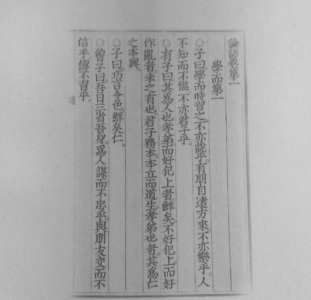 論語第一
學而第一
○子曰學而時習之不亦說乎有朋自遠方來不亦樂乎人
不知而不慍不亦君子乎
○有子曰其爲人也孝弟而好犯上者鮮矣不好犯上而好
作亂者未之有也君子務本本立而道生孝弟也者其爲仁
之本與
○子曰巧言令色鮮矣仁
○曾子曰吾日三省吾身爲人謀而不忠乎與朋友交而不
信乎傳不習乎